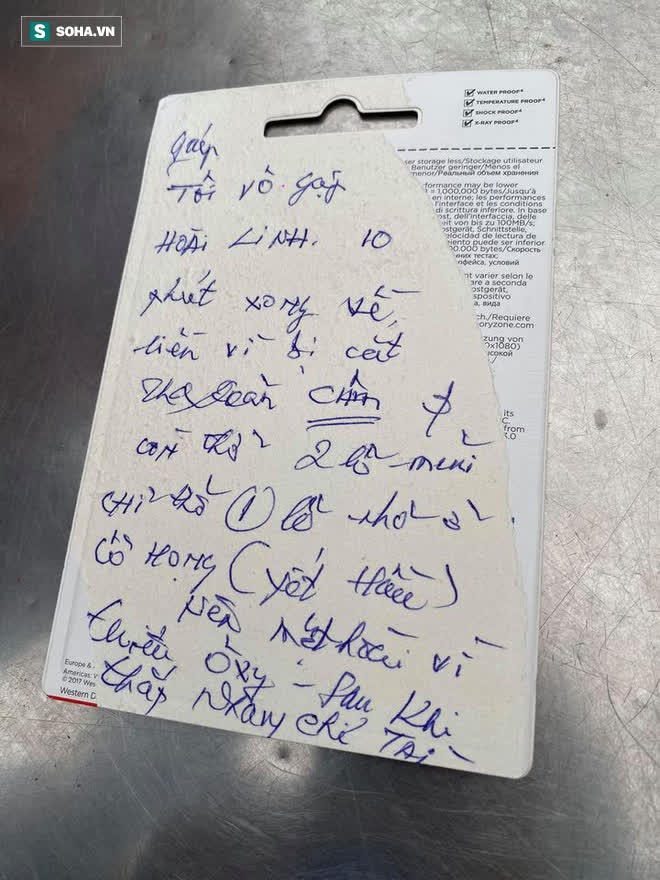 SOHA.VN
WATER PROOF⁴
TEMPERATURE PROOF⁴
SHOCK PROOF⁴
X-RAY PROOF⁴
ser storage less/Stockage utilisateur
Benutzer geringer/Menos el
menor/Реальный объем хранения
rformance may be lower
1 = 1,000,000 bytes/Jusqu'à
en interne; les performances
l'interface et les conditions
di scrittura inferiore. In base
ost, dell'interfaccia, delle
it von bis zu 100MB/s;
ostgerät, Schnittstelle,
velocidad de lectura de
miento puede ser inferior
000.000 bytes/Скорость
нних тестах;
рфейса, условий
nt varier selon le
are a seconda
ostgerät,
spositivo
, вида
ch./Requiere
oryzone.com
zung von
0x1080)
ысокой
its
C.
from
3.0
gấp
Tôi vô gặp
HOÀI LINH. 10
phút xong về,
liền vì bị cắt
CHÂN
còn thở 2 lỗ mũi
CHỈ thở 1 lỗ nhỏ ở
CỔ HỌNG (yết Hầu)
Nên vì
thiếu ÔXy - Sau Khi
thắp Nhang CHỈ TÀI
Europe &
Americas:
© 2017 Wes
Western D